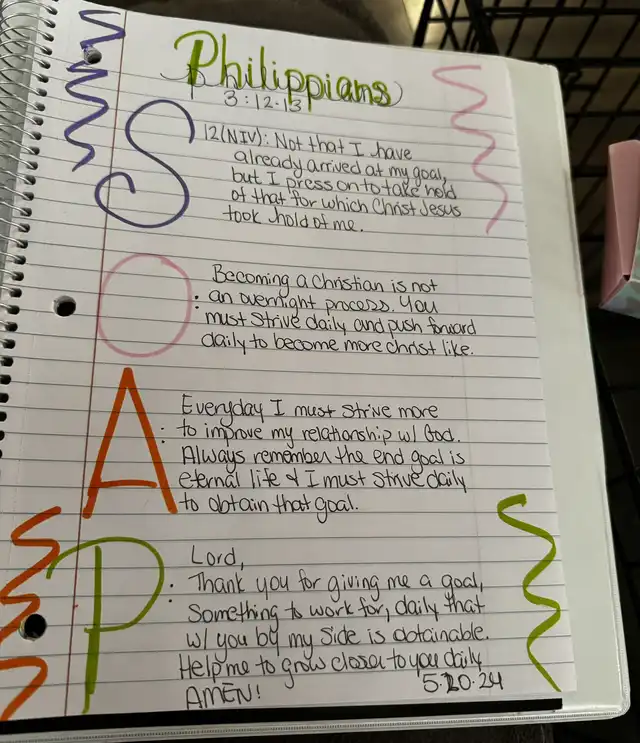 Philippians
3:12-13
S
12(NIV): Not that I have
already arrived at my goal,
but I press on to take hold
of that for which Christ Jesus
took hold of me.
O
: Becoming a Christian is not
an overnight process. You
must strive daily and push forward
daily to become more christ like.
A
: Everyday I must strive more
to improve my relationship w/ God.
Always remember the end goal is
eternal life & I must strive daily
to obtain that goal.
P
: Lord,
Thank you for giving me a goal,
Something to work for, daily that
w/ you by my side is obtainable.
Help me to grow closer to you daily
AMEN!
5.20.24